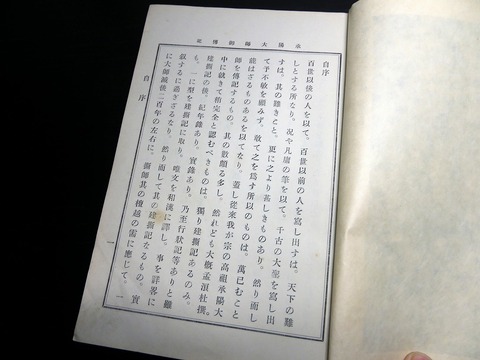 永陽大師御傳記
自序
百世以後の人を以て。百世以前の人を寫し出すは。天下の難
しとする所なり。況や凡庸の筆を以て。千古の大聖を寫し出
すは。其の難きこと。更に之より甚しきものあり。然り而し
て予不敏を顧みず。敢て之を爲す所以のものは。萬已むこと
能はざるものあるを以てなり。蓋し從來我が宗の高祖承陽大
師を傳記するもの。其の數頗る多し。然れども大概孟浪杜撰。
中に就きて稍完全と認むべきものは。獨り建撕記あるのみ。
建撕記の後。紀年錄あり。實錄あり。乃至行狀記等ありと雖
も。一に型を建撕記に取り。唯文を和漢に譯し。事を詳畧に
叙するに過ぎざるなり。然り而して其の建撕記なるもの。實
に大師滅後二百年の左右に。撕師其の檀越の需に應じて。一
自序
一